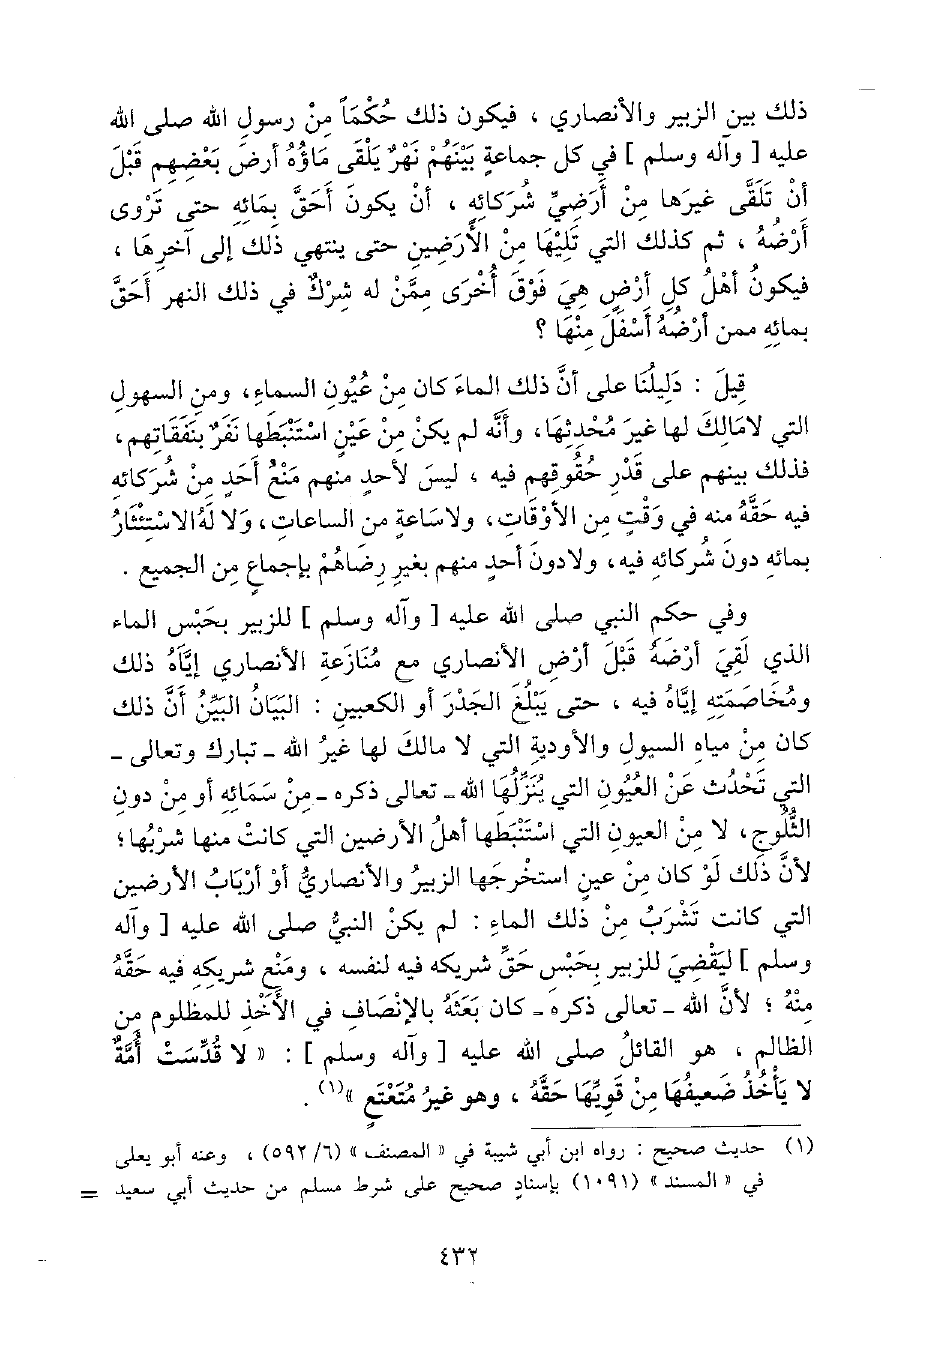 ذلك بين الزبير والأنصاري ، فيكون ذلك حُكْمَاً مِنْ رسولِ الله صلى الله
عليه [ وآله وسلم ] في كل جماعةٍ بَيْنَهُمْ نَهْرٌ يَلْقَى مَاؤُهُ أرضَ بَعْضِهم قَبْلَ
أنْ تَلَقَّى غيرَها مِنْ أَرَضِيِّ شُرَكائِهِ ، أنْ يكونَ أَحَقَّ بِمَائِهِ حتى تَرْوى
أَرْضُهُ ، ثم كذلك التي تَلِيْهَا مِنْ الأَرَضِين حتى ينتهي ذلك إلى آخرِهَا ،
فيكونُ أهْلُ كلِ أرْضٍ هِيَ فَوْقَ أُخْرَى مِمَّنْ له شِرْكٌ في ذلك النهرِ أَحَقَّ
بمائِهِ ممن أرْضُهُ أسْفَلَ مِنْهَا ؟
قِيلَ : دَلِيلُنَا على أنَّ ذلك الماءَ كان مِنْ عُيُونِ السماءِ، ومن السهولِ
التي لامَالِكَ لها غيرَ مُحْدِثِهَا، وأنَّه لم يكن مِنْ عَيْنٍ اسْتَنْبَطَها نَفَرٌ بِنَفَقَاتِهم،
فذلك بينهم على قَدْرِ حُقُوقِهم فيه ، ليسَ لأحدٍ منهم مَنْعُ أَحَدٍ مِنْ شُرَكائِهِ
فيه حَقَّهُ منه في وَقْتٍ مِن الأوْقَاتِ، ولاسَاعةٍ من الساعاتِ، وَلا لَهُ الاسْتِئْثَارُ
بمائِهِ دونَ شُركائِهِ فيه، ولادونَ أحدٍ منهم بغيرِ رِضَاهُمْ بإجماعٍ مِن الجميعِ .
وفي حكمِ النبي صلى الله عليه [ وآله وسلم ] للزبيرِ بحَبْسِ الماءِ
الذي لَقِيَ أرْضَهُ قَبْلَ أرْضِ الأنصاري مع مُنَازَعةِ الأنصاري إيَّاهُ ذلك
ومُخَاصَمَتِهِ إيَّاهُ فيه ، حتى يَبْلُغَ الجَدْرَ أو الكعبينِ : البَيَانُ البَيِّنُ أنَّ ذلك
كان مِنْ مياهِ السيولِ والأوديةِ التي لا مالكَ لها غيرُ الله ـ تبارك وتعالى ـ
التي تَحْدُث عَنْ العُيُونِ التي يُنَزِّلُها الله ـ تعالى ذكره ـ مِنْ سَمَائِهِ أو مِنْ دونِ
الثُّلُوجِ، لا مِنْ العيونِ التي اسْتَنْبَطَها أهلُ الأرضين التي كانتْ منها شرْبُها؛
لأنَّ ذلك لَوْ كان مِنْ عينٍ استخرجَها الزبيرُ والأنصاريُّ أوْ أرْبَابُ الأرضين
التي كانت تَشْرَبُ مِنْ ذلك الماءِ : لم يكنْ النبيُّ صلى الله عليه [ وآله
وسلم ] ليَقْضِيَ للزبيرِ بحَبْسِ حَقِّ شريكِه فيه لنفسه ، ومَنْعِ شريكِهِ فيه حَقَّهُ
مِنْهُ ؛ لأنَّ الله ـ تعالى ذكره ـ كان بَعَثَهُ بالإنْصَافِ في الأَخْذِ للمظلومِ من
الظالمِ ، هو القائلُ صلى الله عليه [ وآله وسلم ] : « لا قُدِّسَتْ أُمَّةٌ
لا يَأْخُذُ ضَعِيفُهَا مِنْ قَوِيِّهَا حَقَّهُ ، وهو غيرُ مُتَعْتَعٍ »(١) .
(١) حديث صحيح : رواه ابن أبي شيبة في « المصنف » (٥٩٢/٦) ، وعنه أبو يعلى
في « المسند » (١٠٩١) بإسنادٍ صحيح على شرط مسلم من حديث أبي سعيد =
٤٣٢